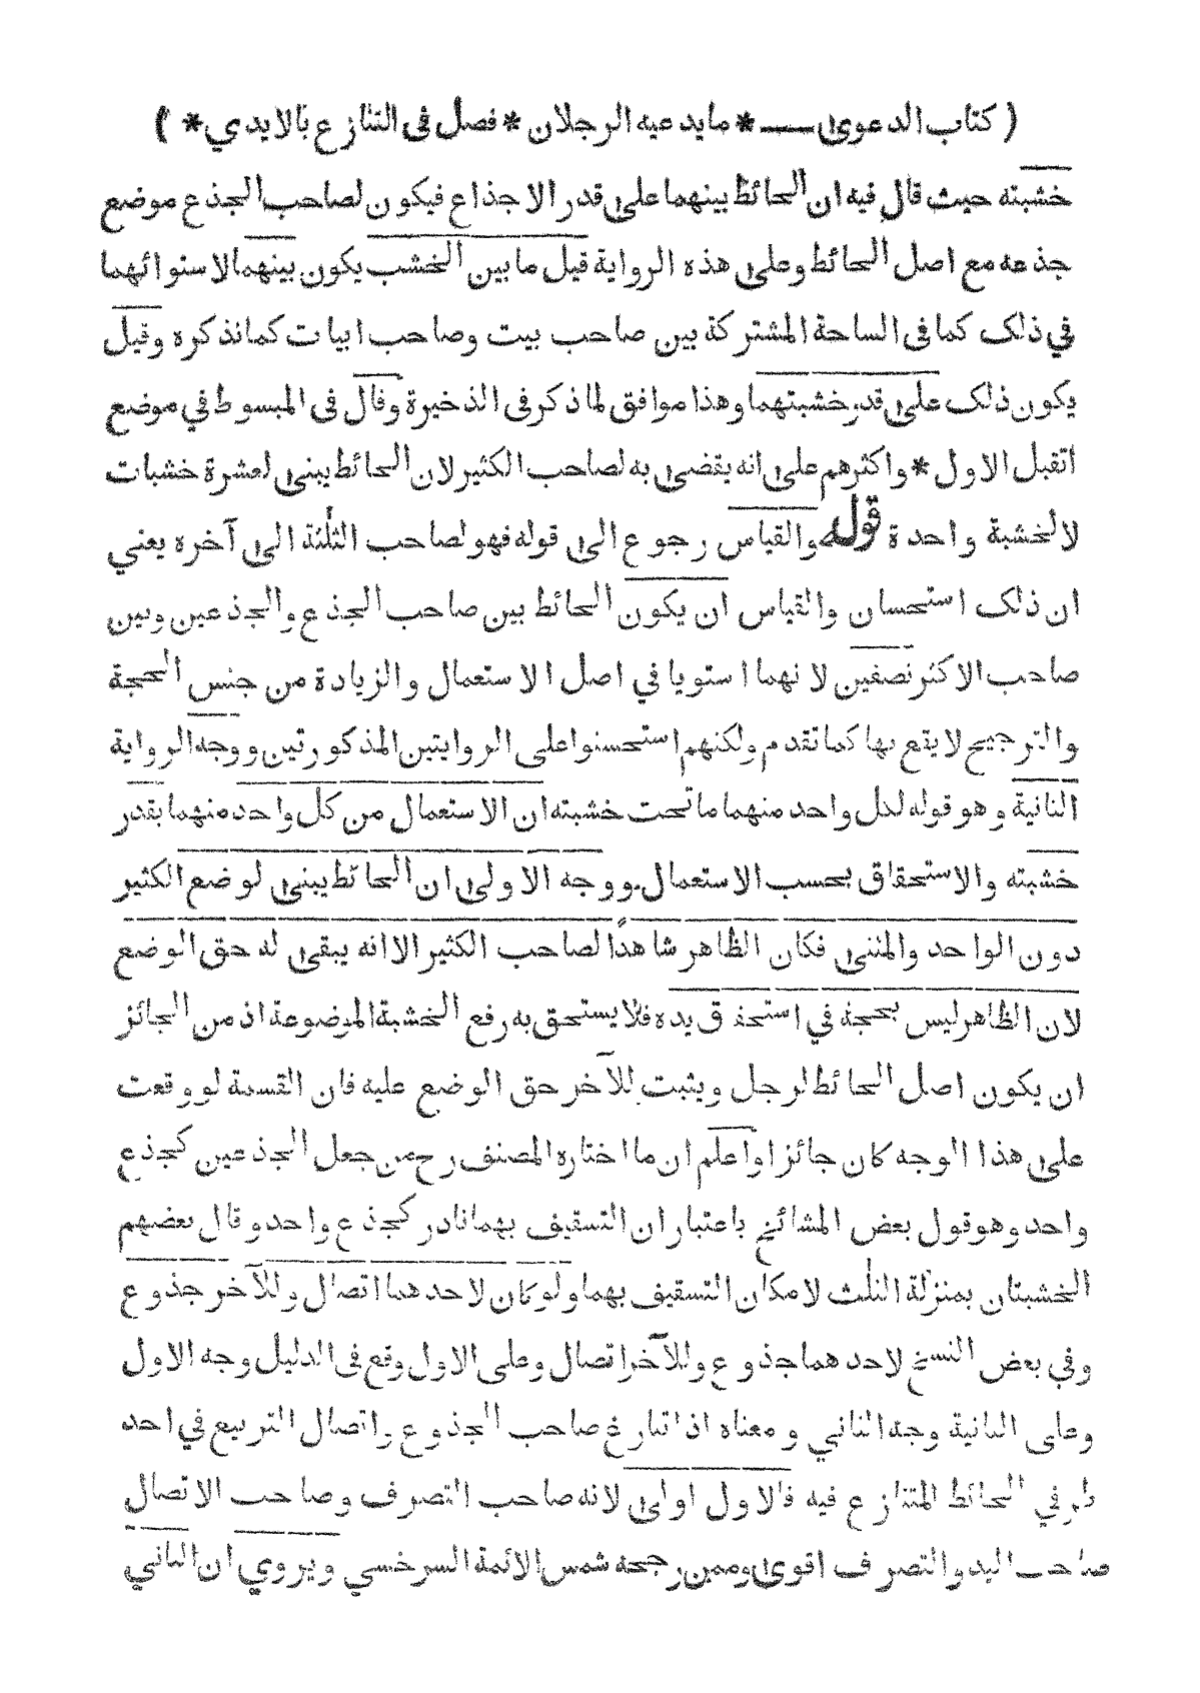 ( كتاب الدعوى — * ما يدعيه الرجلان * فصل فى التنازع بالايدي * )
خشبته حيث قال فيه ان الحائط بينهما على قدر الاجذاع فيكون لصاحب الجذع موضع
جذعه مع اصل الحائط وعلى هذه الرواية قيل ما بين الخشب يكون بينهما لاستوائهما
في ذلك كما فى الساحة المشتركة بين صاحب بيت وصاحب ابيات كما نذكره وقيل
يكون ذلك على قدر خشبتهما وهذا موافق لما ذكر فى الذخيرة وقال فى المبسوط في موضع
اتقبل الاول * واكثرهم على انه يقضى به لصاحب الكثير لان الحائط يبنى لعشرة خشبات
لا لخشبة واحدة قوله والقياس رجوع الى قوله فهو لصاحب الثلثة الى آخره يعني
ان ذلك استحسان والقياس ان يكون الحائط بين صاحب الجذع والجذعين وبين
صاحب الاكثر نصفين لانهما استويا في اصل الاستعمال والزيادة من جنس الحجة
والترجيح لا يقع بها كما تقدم ولكنهم استحسنوا على الروايتين المذكورتين ووجه الرواية
الثانية وهو قوله لكل واحد منهما ما تحت خشبته ان الاستعمال من كل واحد منهما بقدر
خشبته والاستحقاق بحسب الاستعمال ووجه الاولى ان الحائط يبنى لوضع الكثير
دون الواحد والمثنى فكان الظاهر شاهدًا لصاحب الكثير الا انه يبقى له حق الوضع
لان الظاهر ليس بحجة في استحقاق يده فلا يستحق به رفع الخشبة الموضوعة اذ من الجائز
ان يكون اصل الحائط لرجل ويثبت للآخر حق الوضع عليه فان القسمة لو وقعت
على هذا الوجه كان جائزا واعلم ان ما اختاره المصنف رح من جعل الجذعين كجذع
واحد وهو قول بعض المشائخ باعتبار ان التسقيف بهما نادر كجذع واحد وقال بعضهم
الخشبتان بمنزلة الثلث لامكان التسقيف بهما ولو كان لاحدهما اتصال وللآخر جذوع
وفي بعض النسخ لاحدهما جذوع وللآخر اتصال وعلى الاول وقع فى الدليل وجه الاول
وعلى الثانية وجه الثاني ومعناه اذا تنازع صاحب الجذوع واتصال التربيع في احد
طرفي الحائط المتنازع فيه فالاول اولى لانه صاحب التصرف وصاحب الاتصال
صاحب اليد والتصرف اقوى وممن رجحه شمس الائمة السرخسي ويروي ان الثاني